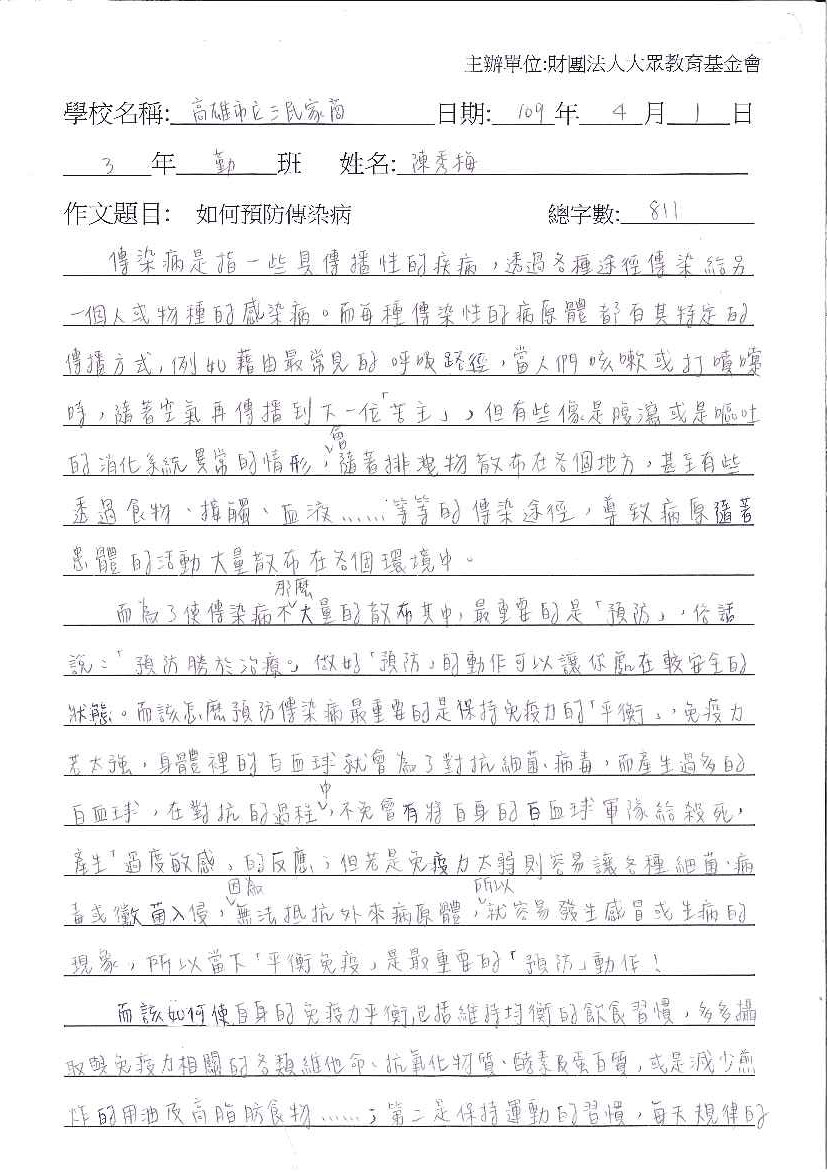 主辦單位:財團法人大眾教育基金會
學校名稱: 高雄市立三民家商 日期: 109 年 4 月 1 日
3 年 勤 班 姓名: 陳秀梅
作文題目: 如何預防傳染病 總字數: 811
傳染病是指一些具傳播性的疾病，透過各種途徑傳染給另
一個人或物種的感染病。而每種傳染性的病原體都有其特定的
傳播方式，例如藉由最常見的呼吸路徑，當人們咳嗽或打噴嚏
時，隨著空氣再傳播到下一位「苦主」，但有些像是腹瀉或是嘔吐
的消化系統異常的情形，會隨著排洩物散布在各個地方，甚至有些
透過食物、接觸、血液……等等的傳染途徑，導致病原隨著
患體的活動大量散布在各個環境中。
而為了使傳染病不那麼大量的散布其中，最重要的是「預防」，俗話
說：「預防勝於治療。」做好「預防」的動作可以讓你處在較安全的
狀態。而該怎麼預防傳染病最重要的是保持免疫力的「平衡」，免疫力
若太強，身體裡的白血球就會為了對抗細菌、病毒，而產生過多的
白血球，在對抗的過程中，不免會有將自身的白血球軍隊給殺死，
產生「過度敏感」的反應；但若是免疫力太弱則容易讓各種細菌、病
毒或黴菌入侵，因為無法抵抗外來病原體，所以就容易發生感冒或生病的
現象，所以當下「平衡免疫」是最重要的「預防」動作！
而該如何使自身的免疫力平衡包括維持均衡的飲食習慣，多多攝
取與免疫力相關的各類維他命、抗氧化物質、酵素及蛋白質，或是減少煎
炸的用油及高脂肪食物……；第二是保持運動的習慣，每天規律的